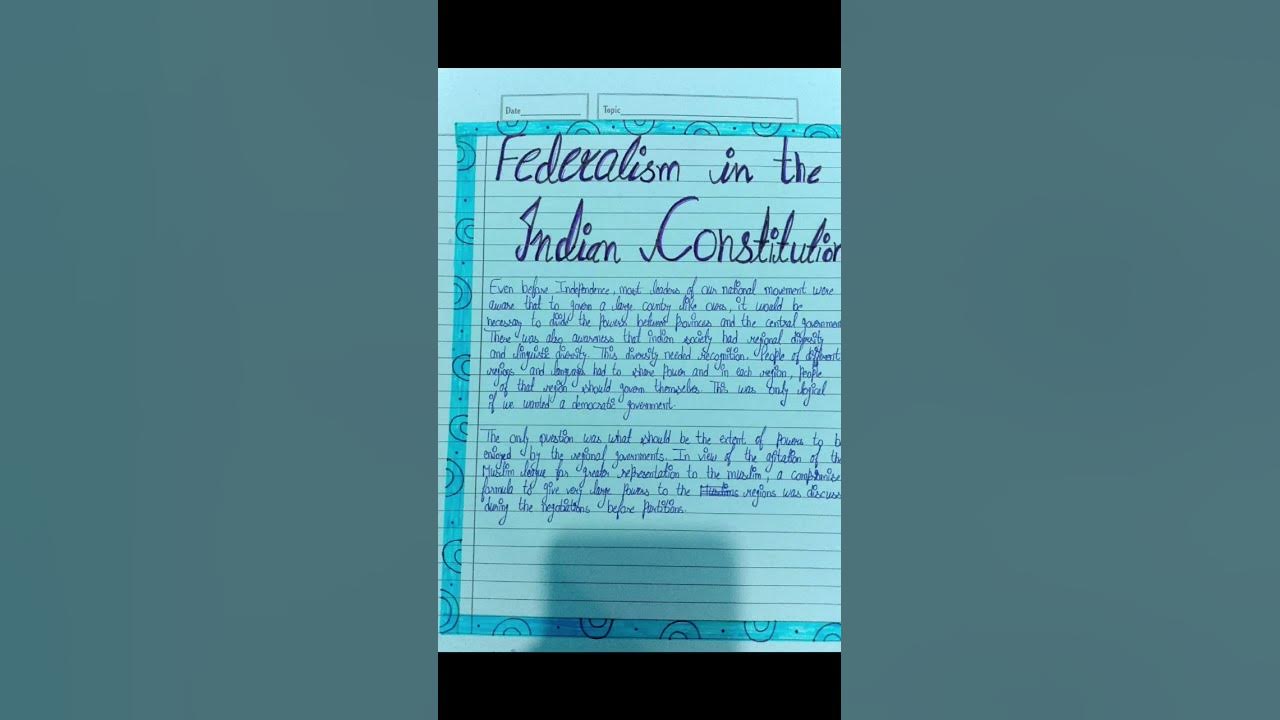 Date
Topic
Federalism in the
Indian Constitution
Even before Independence, most leaders of our national movement were
aware that to govern a large county like ours, it would be
necessary to divide the powers between provinces and the central governmen
There was also awareness that indian society had regional diversity
and linguistic diversity. This diversity needed recognition. People of different
regions and languages had to share power and in each region, people
of that region should govern themselves. This was only logical
if we wanted a democratic government.
The only question was what should be the extent of powers to b
enjoyed by the regional governments. In view of the agitation of the
Muslim league for greater representation to the muslim, a compromise
formula to give very large powers to the Muslims regions was discuss
during the negotiations before partitions.